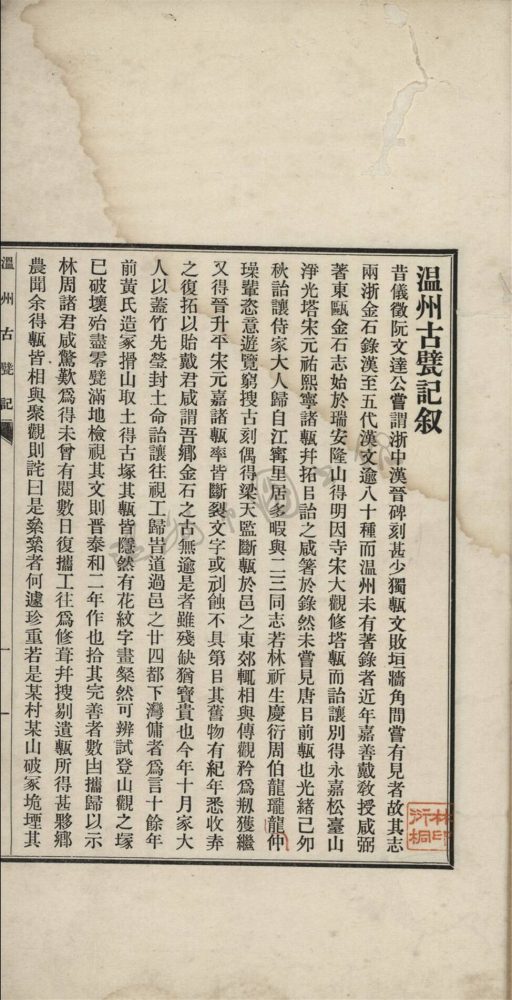 温州古甓記叙
昔儀徵阮文達公嘗謂浙中漢晉碑刻甚少獨甎文敗垣牆角間嘗有見者故其志
兩浙金石錄漢至五代漢文逾八十種而温州未有著錄者近年嘉善戴敎授咸弼
著東甌金石志始於瑞安隆山得明因寺宋大觀修塔甎而詒讓別得永嘉松臺山
淨光塔宋元祐熙寧諸甎幷拓㠯詒之咸箸於錄然未嘗見唐㠯前甎也光緒己卯
秋詒讓侍家大人歸自江寗里居多暇與二三同志若林祈生慶衍周伯龍瓏龍仲
璪輩恣意遊覽窮搜古刻偶得梁天監斷甎於邑之東郊輒相與傳觀矜爲剏獲繼
又得晉升平宋元嘉諸甎率皆斷裂文字或刓蝕不具第㠯其舊物有紀年悉收弆
之復拓以貽戴君咸謂吾鄕金石之古無逾是者雖殘缺猶寶貴也今年十月家大
人以蓋竹先塋封土命詒讓往視工歸旹道過邑之廿四都下灣傭者爲言十餘年
前黃氏造冢搰山取土得古塚其甎皆隱然有花紋字畫粲然可辨試登山觀之塚
已破壞殆盡零甓滿地檢視其文則晋泰和二年作也拾其完善者數凷攜歸以示
林周諸君咸驚歎爲得未曾有閱數日復攜工往爲修葺幷搜剔遺甎所得甚夥鄕
農聞余得甎皆相與聚觀則詫曰是纍纍者何遽珍重若是某村某山破冢垝堙其
溫州古甓記
一
林印
衍桐